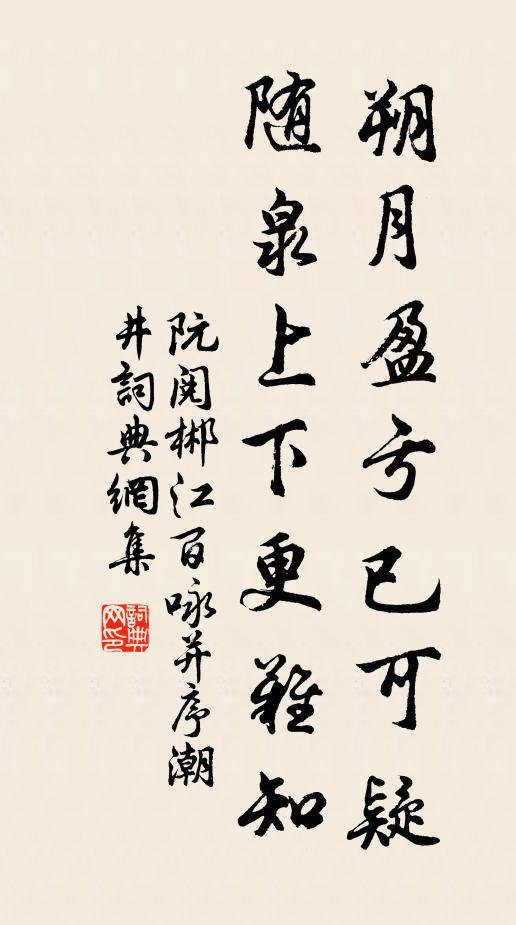 朔月盈亏已可疑
随泉上下更難知
阮閱郴江百咏并序潮
井詞典網集
詞典网印